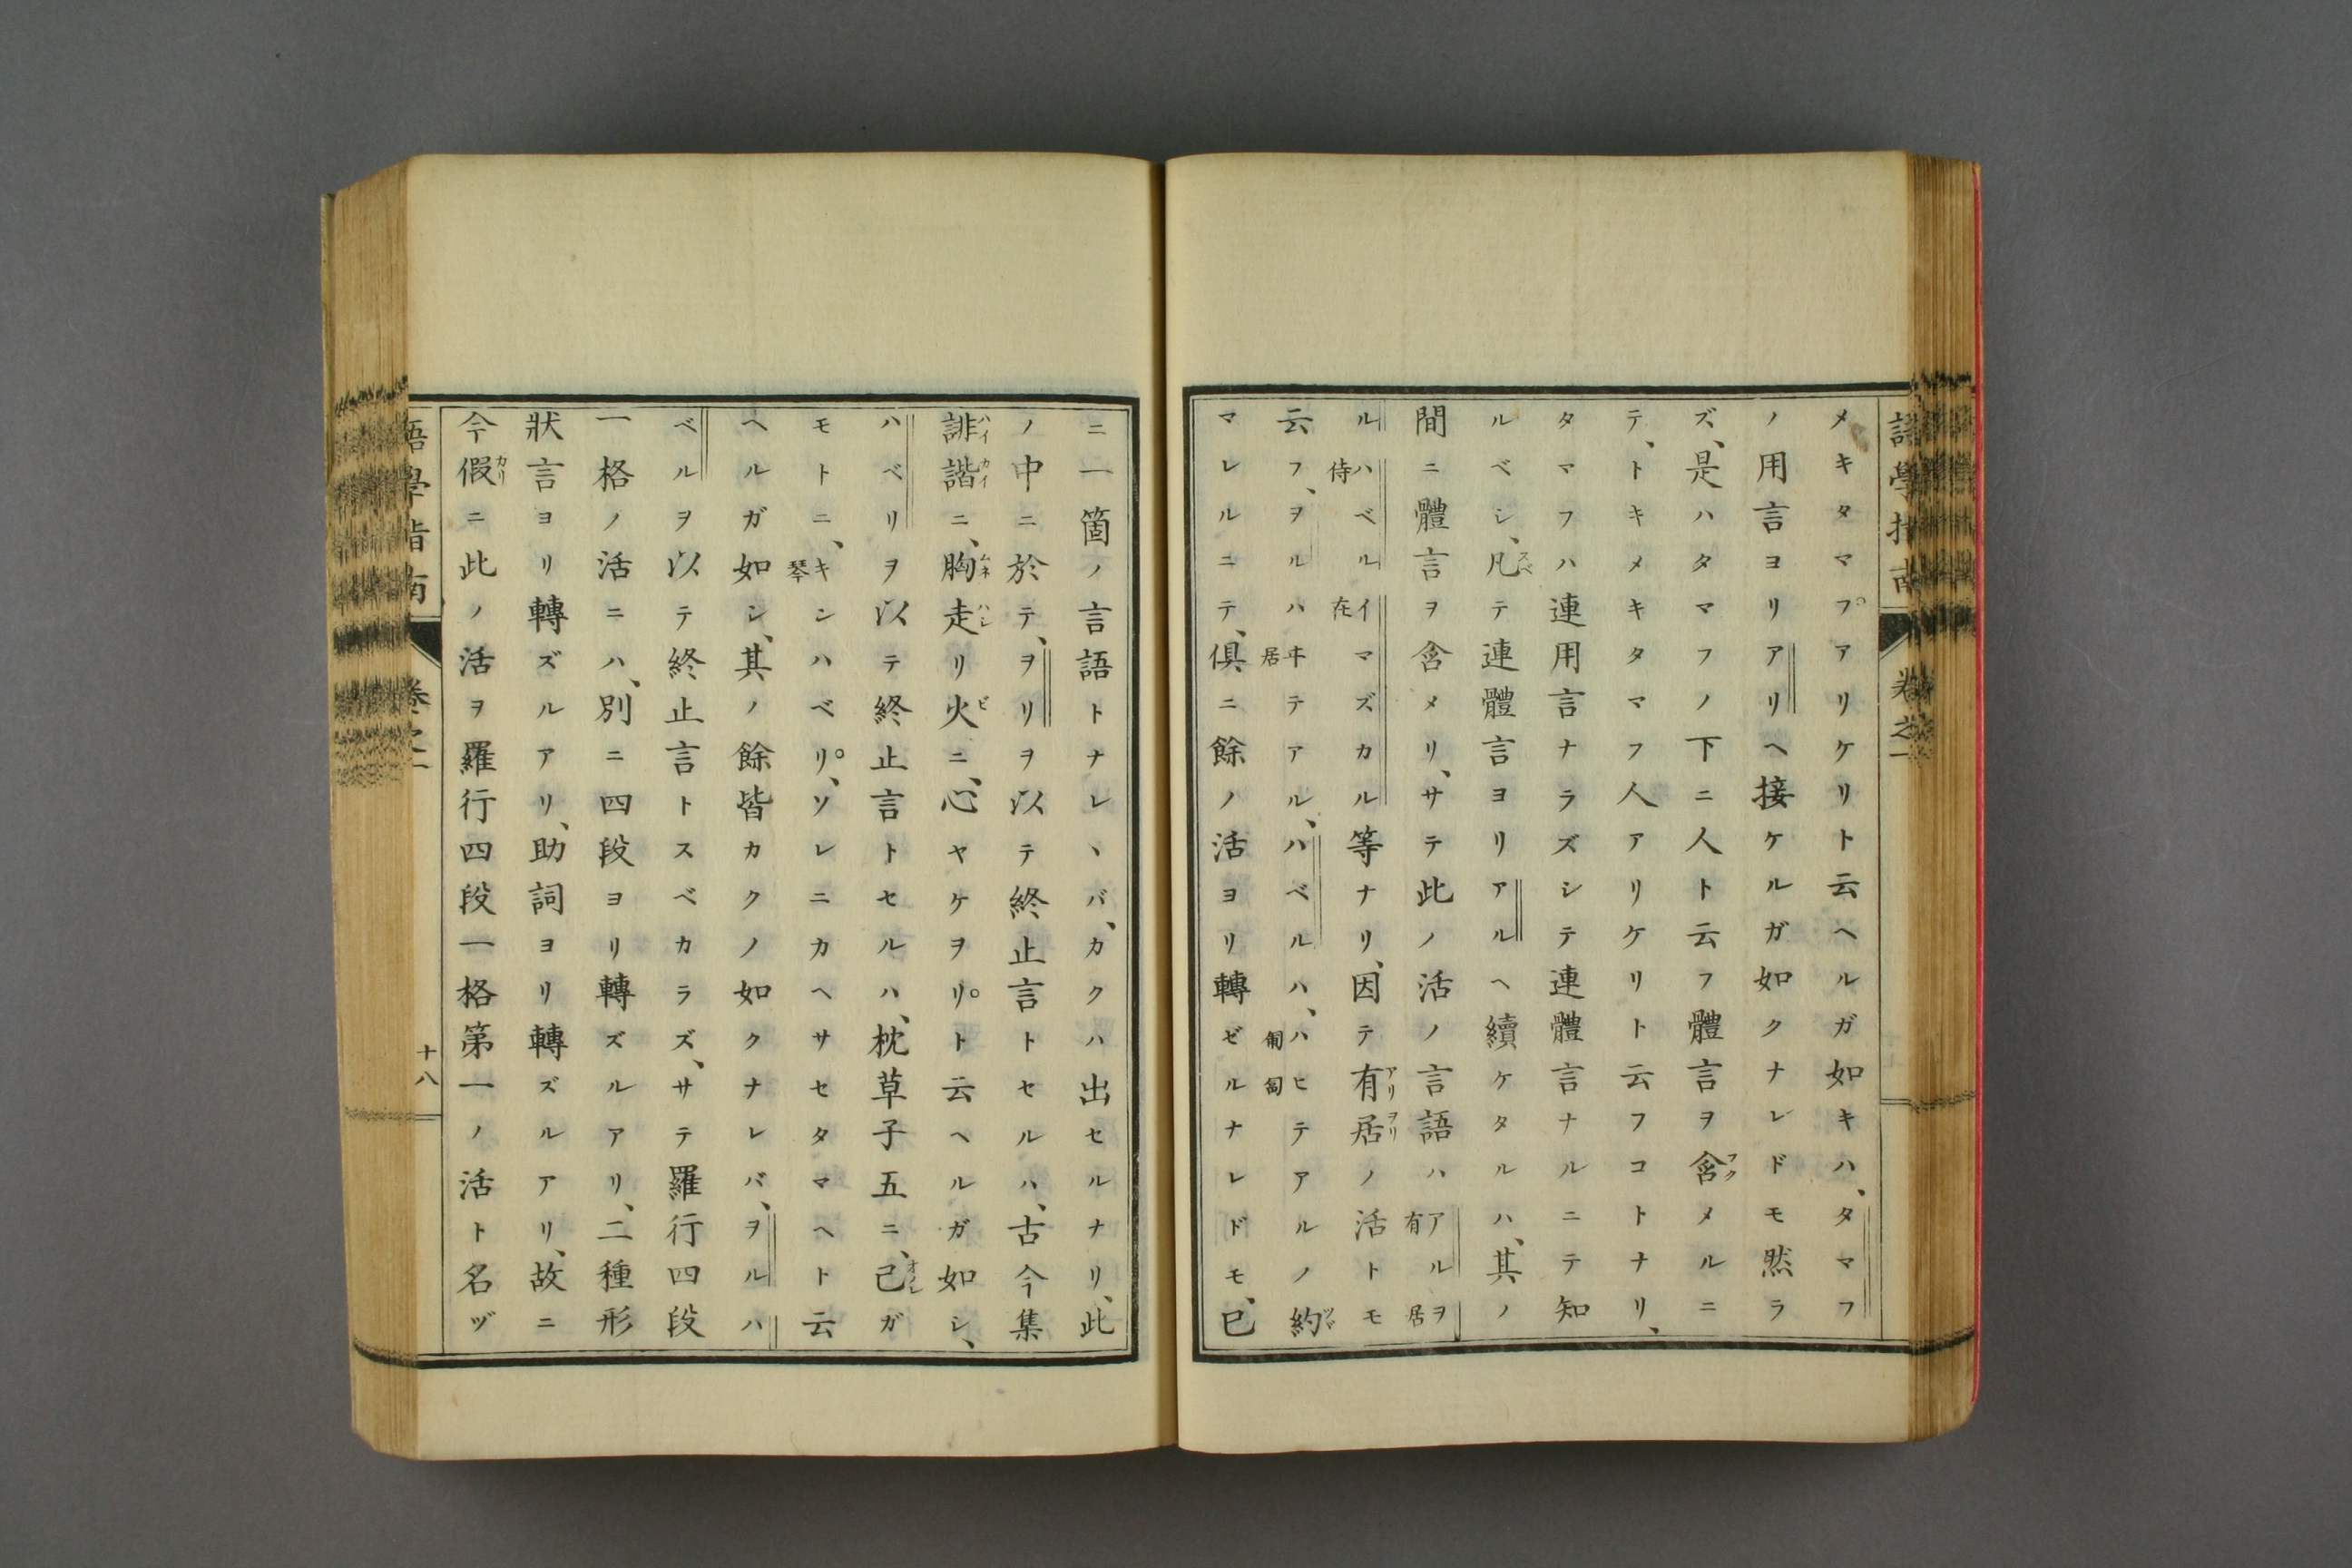 語學指南 卷之一
メキタマフアリケリト云ヘルガ如キハ、タマフ
ノ用言ヨリアリヘ接ケルガ如クナレドモ然ラ
ズ、是ハタマフノ下ニ人ト云フ體言ヲ含メルニ
テ、トキメキタマフ人アリケリト云フコトナリ、
タマフハ連用言ナラズシテ連體言ナルニテ知
ルベシ、凡テ連體言ヨリアルヘ續ケタルハ、其ノ
間ニ體言ヲ含メリ、サテ此ノ活ノ言語ハアル有ヲ居
ルハベル侍イマズカル在等ナリ、因テ有居ノ活トモ
云フ、ヲルハヰテアル居、ハベルハ、ハヒテアル匍匐ノ約
マレルニテ、俱ニ餘ノ活ヨリ轉ゼルナレドモ、已
ニ一箇ノ言語トナレヽバ、カクハ出セルナリ、此
ノ中ニ於テ、ヲリヲ以テ終止言トセルハ、古今集
誹諧ニ、胸走リ火ニ、心ヤケヲリト云ヘルガ如シ、
ハベリヲ以テ終止言トセルハ、枕草子五ニ、己ガ
モトニ、キン琴ハベリ、ソレニカヘサセタマヘト云
ヘルガ如シ、其ノ餘皆カクノ如クナレバ、ヲルハ
ベルヲ以テ終止言トスベカラズ、サテ羅行四段
一格ノ活ニハ、別ニ四段ヨリ轉ズルアリ、二種形
狀言ヨリ轉ズルアリ、助詞ヨリ轉ズルアリ、故ニ
今假ニ此ノ活ヲ羅行四段一格第一ノ活ト名ヅ
語學指南 卷之一 十八